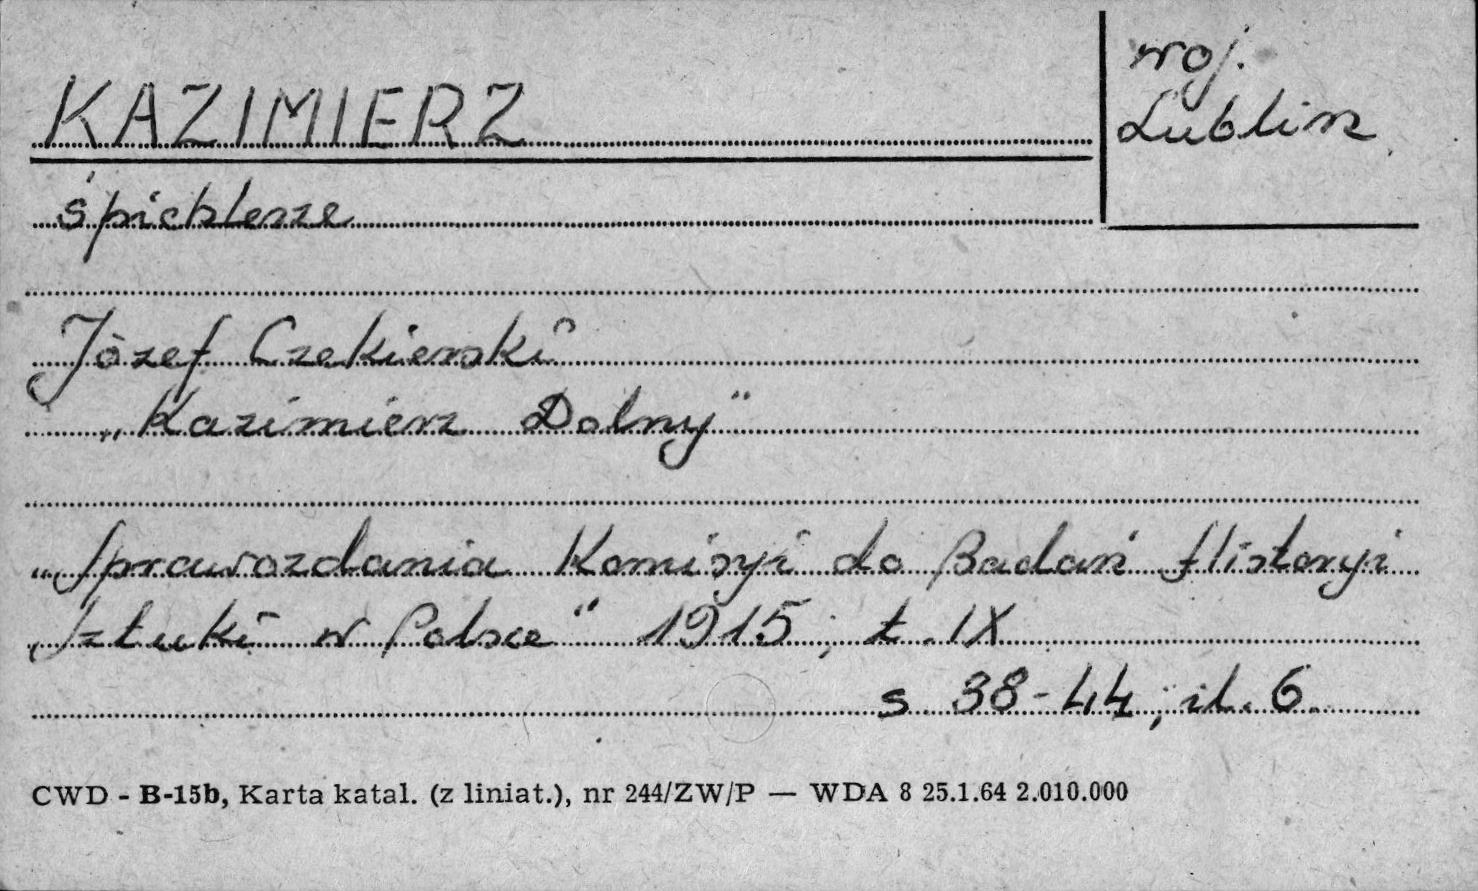 KAZIMIERZ
woj.
Lublin
śpichlerze
Józef Czekierski
„Kazimierz Dolny"
„Sprawozdania Komisyi do Badań Historyi
Sztuki w Polsce" 1915, t. IX
s. 38-44, il. 6.
CWD - B-15b, Karta katal. (z liniat.), nr 244/ZW/P — WDA 8 25.1.64 2.010.000